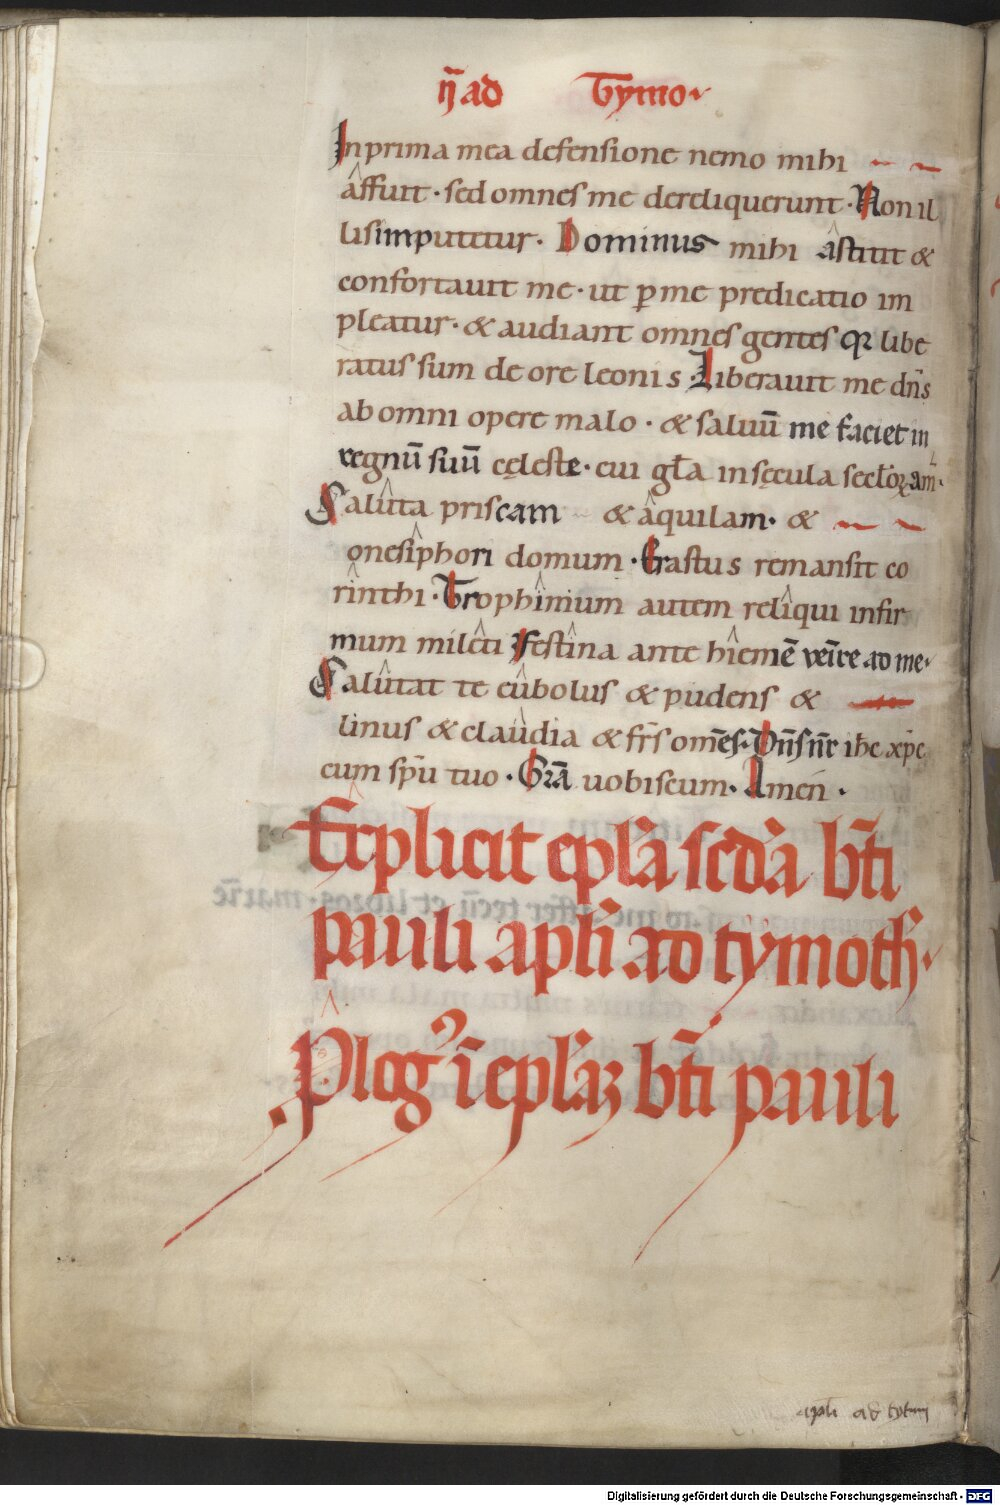 ij̄ ad Tymo
In prima mea defensione nemo mihi
affuit · sed omnes me dereliquerunt · Non il
lis imputetur · Dominus mihi astitit &
confortauit me · ut ꝑ me predicatio im
pleatur · & audiant omnes gentes qꝛ libe
ratus sum de ore leonis · Liberauit me dn̄s
ab omni opere malo · & saluū me faciet in
regnū suū cęleste · cui gl̄a in sęcula secl̄oꝝ am̄ ·
Saluta priscam & aquilam · &
onesiphori domum · Erastus remansit co
rinthi · Trophimum autem reliqui infir
mum mileti Festina ante hiemē veīre ad me ·
Salutat te eubolus & pudens &
linus & claudia & fr̄s om̄es · Dn̄s nr̄ ih̄c xp̄c
cum sp̄u tuo · Gr̄a uobiscum · Amen ·
Explicit epl̄a scd̄a bt̄i
pauli apl̄i ad tymoth̄ ·
Plog⁹ ī epl̄aꝫ bt̄i pauli
apl̄i ad tytum
Digitalisierung gefördert durch die Deutsche Forschungsgemeinschaft - DFG